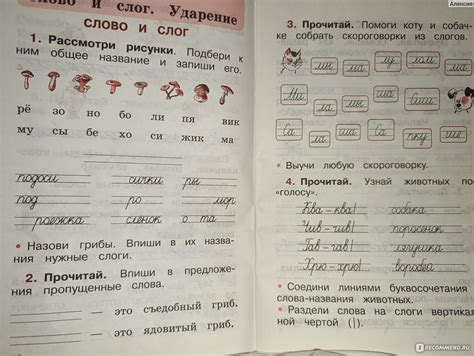 Слово и слог. Ударение
СЛОВО И СЛОГ
1. Рассмотри рисунки. Подбери к
ним общее название и запиши его.
рё зо но бо ли пя вик
му сы бе хо си жик ма
подоси сички ры
под ро мор
роежка сленок о та
• Назови грибы. Впиши в их назва-
ния нужные слоги.
2. Прочитай. Впиши в предложе-
ния пропущенные слова.
— это съедобный гриб.
— это ядовитый гриб.
3. Прочитай. Помоги коту и собач-
ке собрать скороговорки из слогов.
мы ма му лом ма
Ми ла ша ла ше Еши
Са ла ша Са пку ше
• Выучи любую скороговорку.
4. Прочитай. Узнай животных по
«голосу».
Ква-ква! собака
Чив-чив! поросёнок
Гав-гав! лягушка
Хрю-хрю! воробей
• Соедини линиями буквосочетания
и слова-названия животных.
• Раздели слова на слоги вертикаль-
ной чертой (|).
RECOMMEND.RU